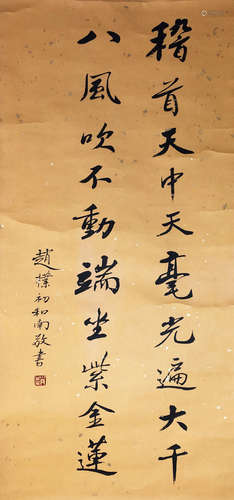 稽首天中天毫光遍大千
八風吹不動端坐紫金蓮
趙樸初和南敬書